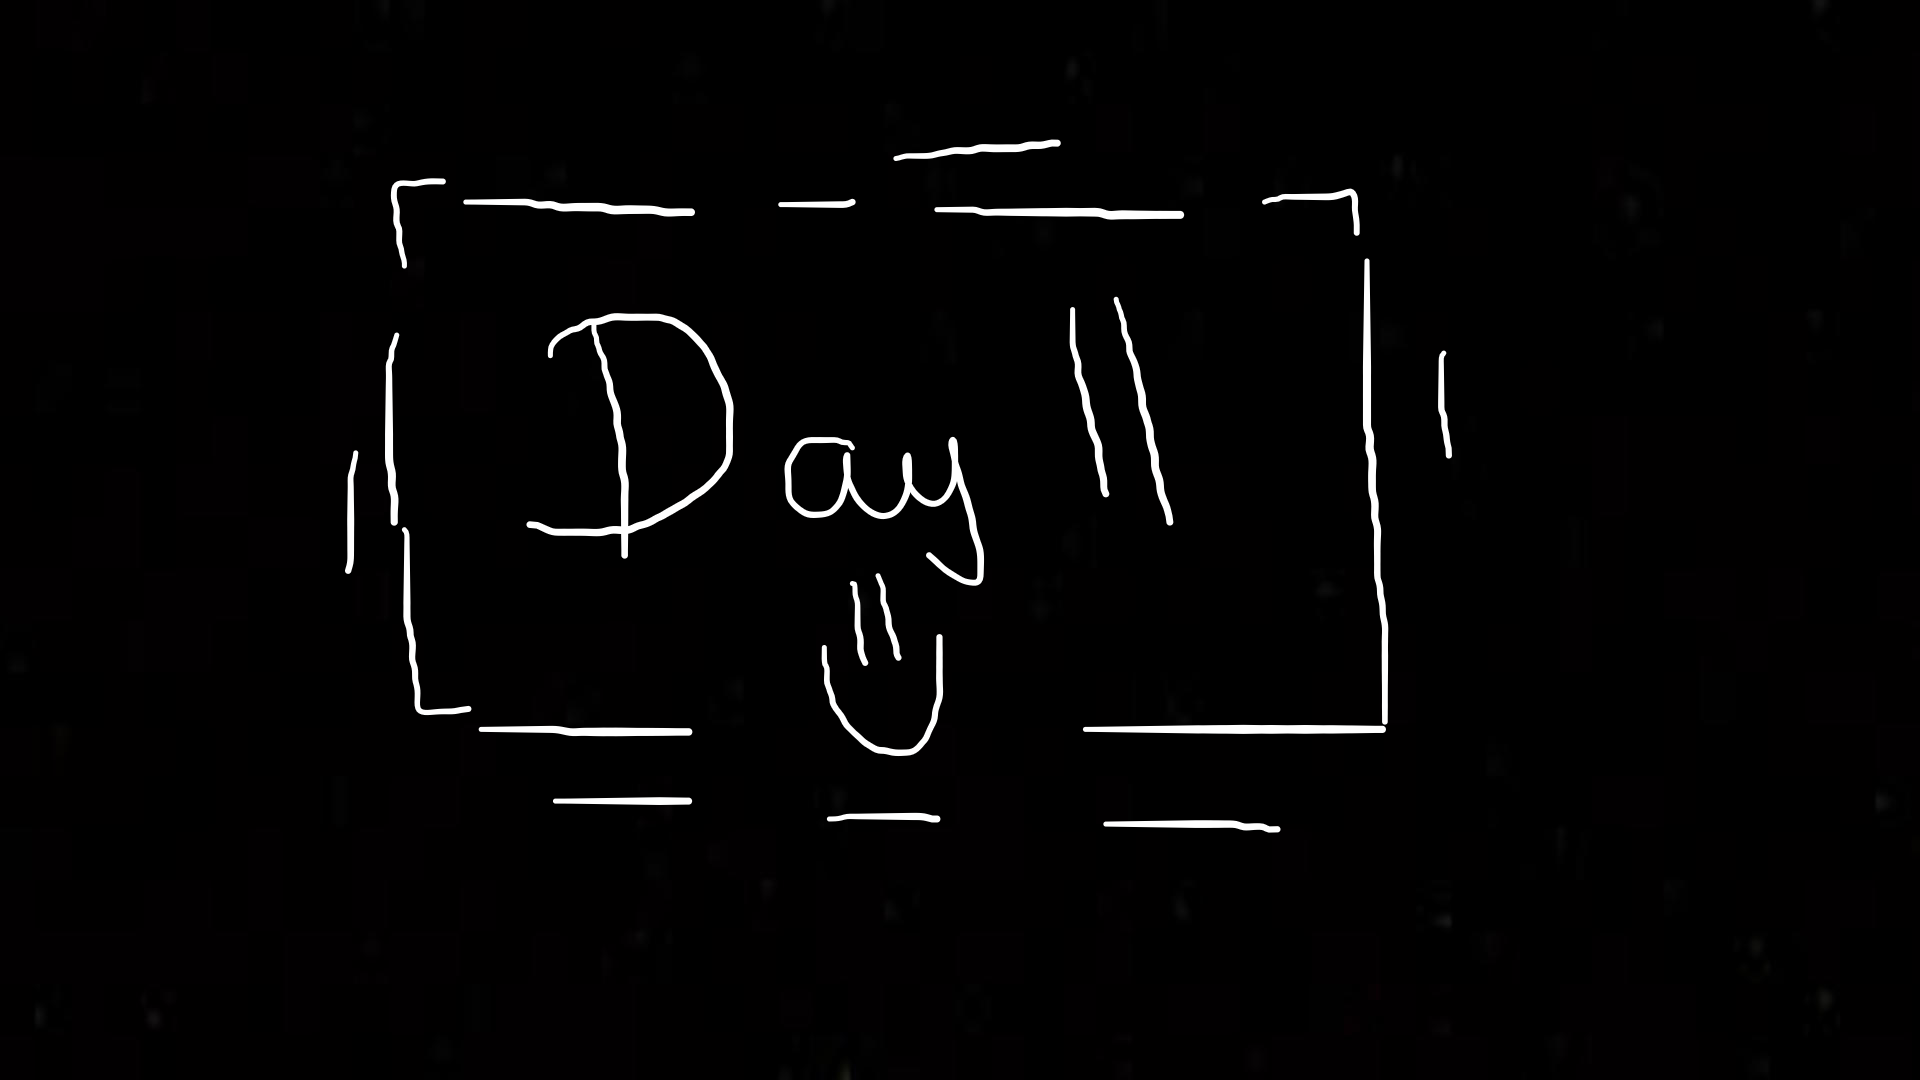 Day 11